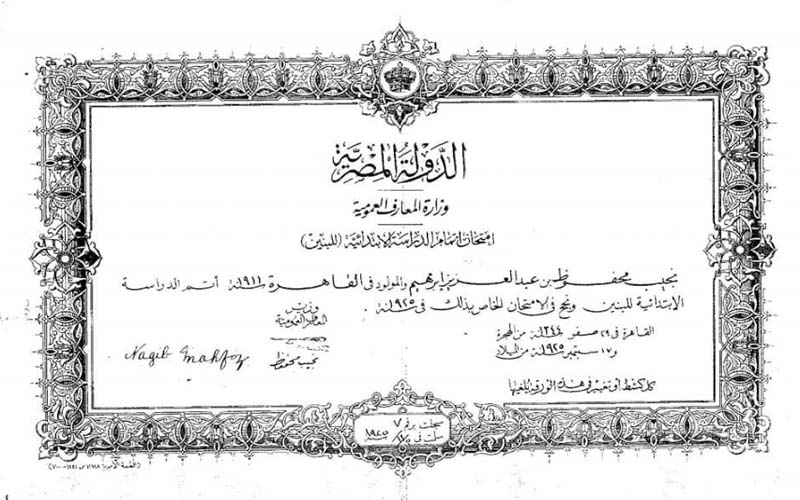 الدولة المصرية
وزارة المعارف العمومية
امتحان اتمام الدراسة الابتدائية (للبنين)
نجيب محفوظ بن عبد العزيز ابرهيم والمولود فى القاهرة سنة ١٩١١ أتم الدراسة
الابتدائية للبنين ونجح فى الامتحان الخاص بذلك فى سنة ١٩٢٥
القاهرة فى ٢٩ صفر سنة ١٣٤٤ من الهجرة
و١٧ سبتمبر سنة ١٩٢٥ من الميلاد
وزير
المعارف العمومية
نجيب محفوظ
Nagib Mahfoz
كل كشط أو تغيير فى هذه الورقة يلغيها
سجلت برقم ٧
سنة ١٩٢٥